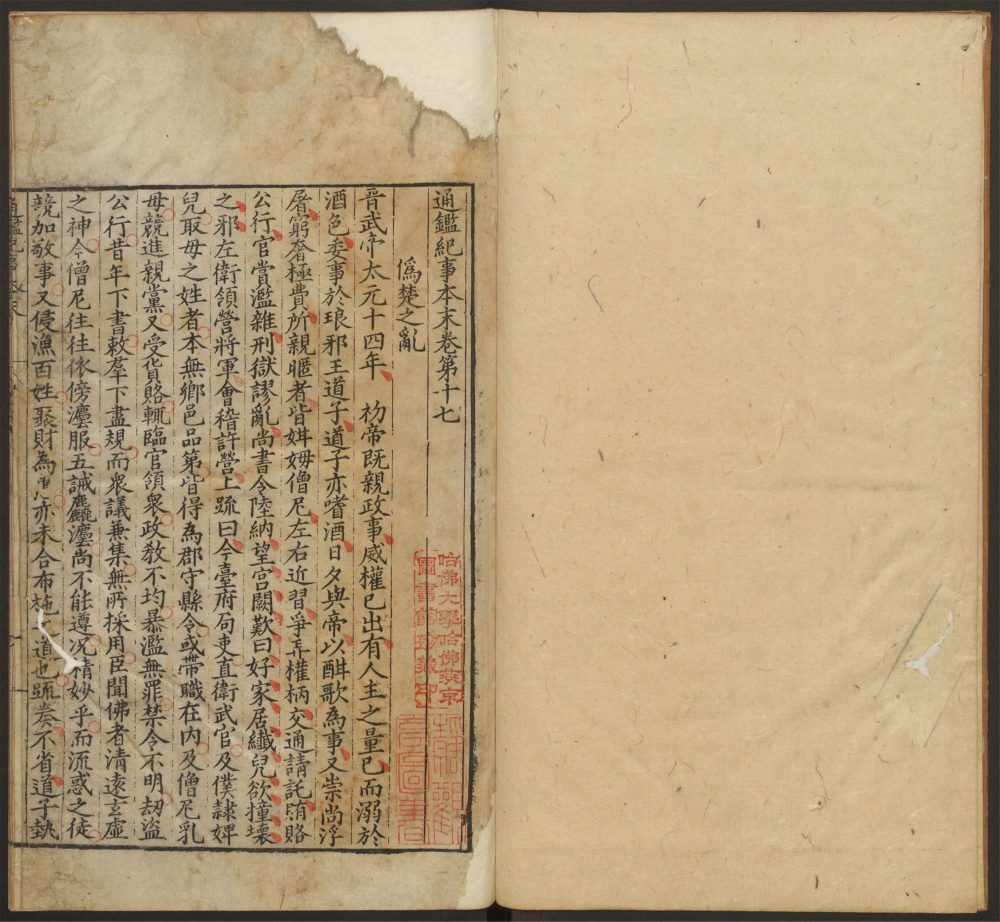 通鑑紀事本末卷第十七
僞楚之亂
晉武帝太元十四年 初帝既親政事威權巳出有人主之量巳而溺於
酒色委事於琅邪王道子道子亦嗜酒日夕與帝以酣歌為事又崇尚浮
屠窮奢極費所親暱者皆姏姆僧尼左右近習爭弄權柄交通請託賄賂
公行官賞濫雜刑獄謬亂尚書令陸納望宮闕歎曰好家居纎兒欲撞壞
之邪左衛領營將軍會稽許營上疏曰今臺府局吏直衛武官及僕隸婢
兒取母之姓者本無鄉邑品第皆得為郡守縣令或帶職在内及僧尼乳
母競進親黨又受貨賂輒臨官領衆政敎不均暴濫無罪禁令不明刼盜
公行昔年下書敕羣下盡規而衆議兼集無所採用臣聞佛者清遠玄虛
之神今僧尼往往依傍灋服五誡麤灋尚不能遵况精妙乎而流惑之徒
競加敬事又侵漁百姓聚財為亦未合布施之道也疏奏不省道子執
通鑑紀事本末
哈佛大學哈佛燕京
圖書館珍藏印